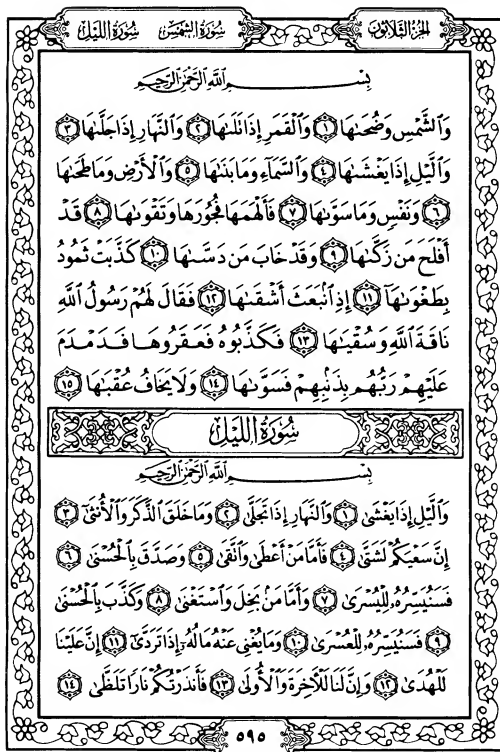 الجزء الثلاثون
سورة الشمس
سورة الليل
بِسْمِ اللَّهِ الرَّحْمَٰنِ الرَّحِيمِ
وَالشَّمْسِ وَضُحَىٰهَا ١ وَالْقَمَرِ إِذَا تَلَىٰهَا ٢ وَالنَّهَارِ إِذَا جَلَّىٰهَا ٣
وَالَّيْلِ إِذَا يَغْشَىٰهَا ٤ وَالسَّمَاءِ وَمَا بَنَىٰهَا ٥ وَالْأَرْضِ وَمَا طَحَىٰهَا
٦ وَنَفْسٍ وَمَا سَوَّىٰهَا ٧ فَأَلْهَمَهَا فُجُورَهَا وَتَقْوَىٰهَا ٨ قَدْ
أَفْلَحَ مَن زَكَّىٰهَا ٩ وَقَدْ خَابَ مَن دَسَّىٰهَا ١٠ كَذَّبَتْ ثَمُودُ
بِطَغْوَىٰهَا ١١ إِذِ انۢبَعَثَ أَشْقَىٰهَا ١٢ فَقَالَ لَهُمْ رَسُولُ اللَّهِ
نَاقَةَ اللَّهِ وَسُقْيَٰهَا ١٣ فَكَذَّبُوهُ فَعَقَرُوهَا فَدَمْدَمَ
عَلَيْهِمْ رَبُّهُم بِذَنۢبِهِمْ فَسَوَّىٰهَا ١٤ وَلَا يَخَافُ عُقْبَٰهَا ١٥
سُورَةُ اللَّيْلِ
بِسْمِ اللَّهِ الرَّحْمَٰنِ الرَّحِيمِ
وَالَّيْلِ إِذَا يَغْشَىٰ ١ وَالنَّهَارِ إِذَا تَجَلَّىٰ ٢ وَمَا خَلَقَ الذَّكَرَ وَالْأُنثَىٰ ٣
إِنَّ سَعْيَكُمْ لَشَتَّىٰ ٤ فَأَمَّا مَنْ أَعْطَىٰ وَاتَّقَىٰ ٥ وَصَدَّقَ بِالْحُسْنَىٰ ٦
فَسَنُيَسِّرُهُۥ لِلْيُسْرَىٰ ٧ وَأَمَّا مَنۢ بَخِلَ وَاسْتَغْنَىٰ ٨ وَكَذَّبَ بِالْحُسْنَىٰ
٩ فَسَنُيَسِّرُهُۥ لِلْعُسْرَىٰ ١٠ وَمَا يُغْنِي عَنْهُ مَالُهُۥ إِذَا تَرَدَّىٰ ١١ إِنَّ عَلَيْنَا
لَلْهُدَىٰ ١٢ وَإِنَّ لَنَا لَلْآخِرَةَ وَالْأُولَىٰ ١٣ فَأَنذَرْتُكُمْ نَارًا تَلَظَّىٰ ١٤
٥٩٥